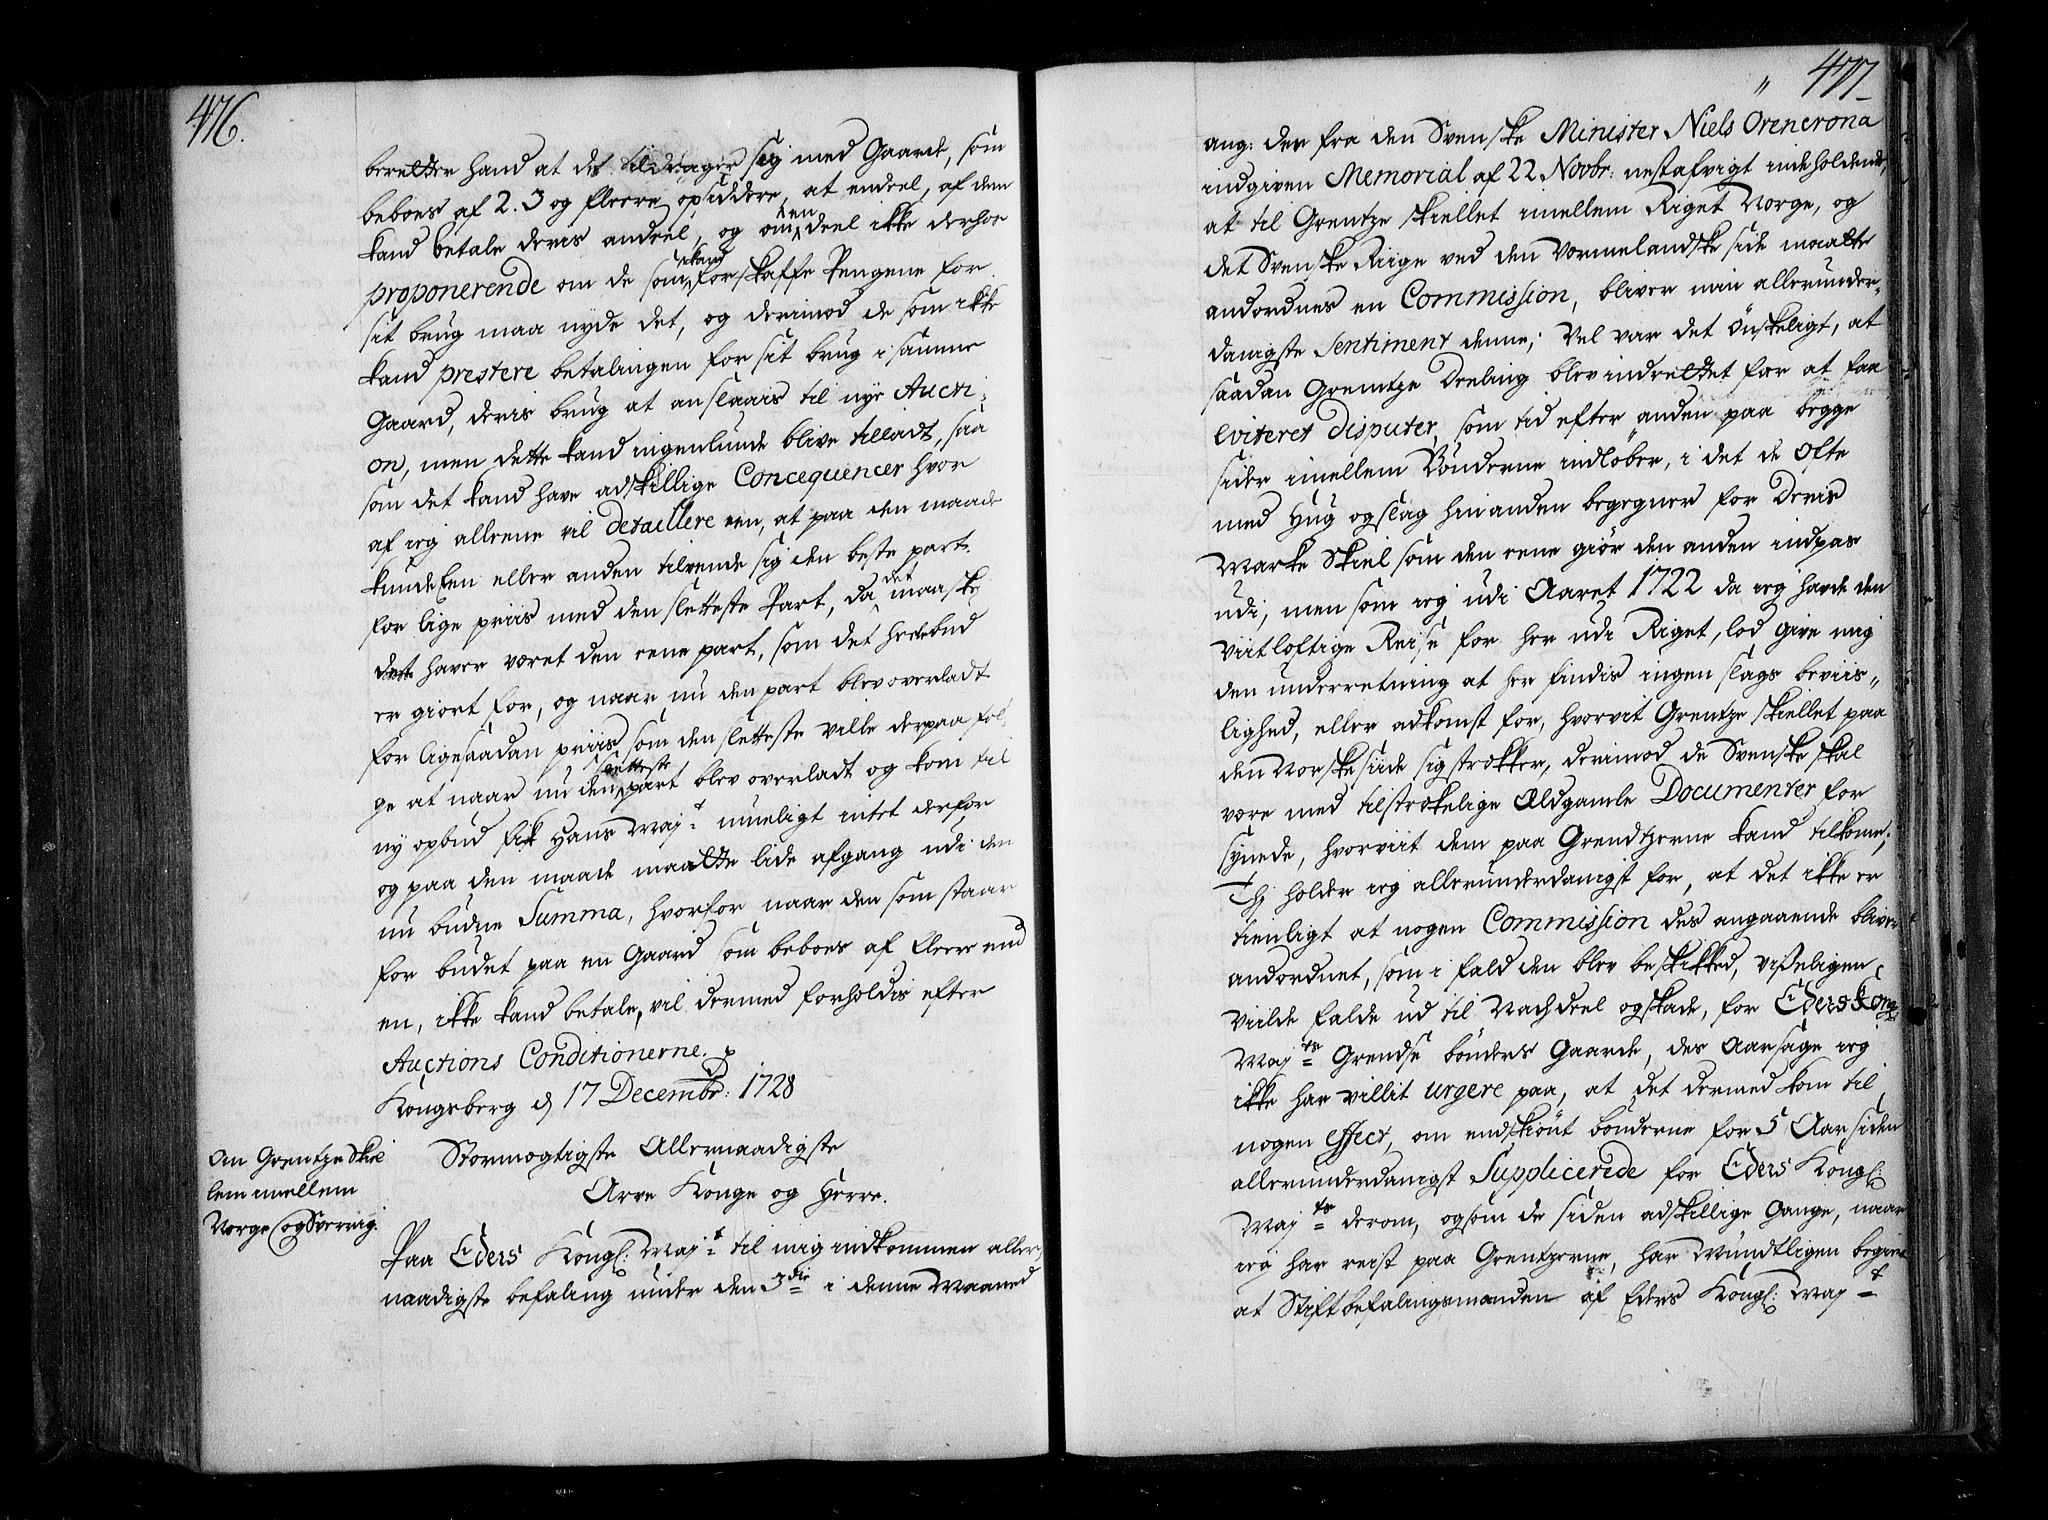 476.
beretter hand at det tildrager sig med Gaarde, som
beboes af 2. 3 og fleere opsiddere, at endeel, af dem
kand betale deris andeel, og om en deel ikke derhos
proponerende om de som kand forskaffe Pengene for
sit brug maa nyde det, og derimod de som ikke
kand prestere betalingen for sit brug i samme
Gaard, deris brug at anslaais til nye Aucti-
on, men dette kand ingenlunde blive tilladt, saa
som det kand have adskillige Concequencer hvor
af ieg alleene vil detaillere een, at paa den maade
kunde Een eller anden tilvende sig den beste part
for lige priis med den sletteste Part, da det maaske
haver været den eene part, som det heele bud
er giort for, og naar nu den part blev overladt
for ligesaadan priis som den sletteste ville derpaa føl-
ge at naar nu den sletteste part blev overladt og kom til
ny opbud fik Hans Maj:t mueligt intet derfor
og paa den maade maatte lide afgang udi den
nu budne Summa, hvorfor naar den som staar
for budet paa en Gaard som beboes af fleere end
en, ikke kand betale, vil dermed forholdis efter
Auctions Conditionerne.
Kongsberg d 17 Decembr: 1728
An Grentze Skiel
lem imellem
Norge og Sverrig.
Stormægtigste Allernaadigste
Arve Konge og Herre.
Paa Eders Kongl: Maj:t til mig indkommen aller-
naadigste befaling under den 3die i denne Maaned
477
ang: den fra den Svenske Minister Niels Orencrona
indgiven Memorial af 22 Novbr: nestafvigt indeholdende,
at til Grentze skiellet imellem Riget Norge, og
det Svenske Riige ved den Vermelandske side maatte
andordnes en Commission, bliver min allerunder-
danigste Sentiment denne; Vel var det ønskeligt, at
saadan Grentze Deeling blev indrettet for at faa
Eviteret disputer som tid efter anden paa begge
sider imellem Bønderne indløber, i det de ofte
med Hug og slag hinanden begegner for Deris
Marke Skiel som den eene giør den anden indpas
udi, men som ieg udi Aaret 1722 da ieg havde den
viitløftige Reise for her udi Riget, lod give mig
den underretning at her findis ingen slags beviis-
lighed, eller adkomst for, hvorvit Grentze skiellet paa
den Norske siide sig strækker, derimod de Svenske skal
være med tilstrækelige Ældgamle Documenter for
synede, hvorviit dem paa Grendtzerne kand tilkome;
Thi holder ieg allerunderdanigst for, at det ikke er
tienligt at nogen Commission des angaaende bliver
andordnet, som i fald den blev beskikked, visseligen
viilde falde ud til Nachdeel og skade, for Eders Kong
Maj:ts Grendse bønders Gaarde, des Aarsage ieg
ikke har villit urgere paa, at det dermed kom til
nogen effect, om endskiønt bønderne for 5 Aar siden
allerunderdanigst Supplicerede for Eders Kongl:
Maj:ts derom, og som de siden adskillige Gange, naar
ieg har reist paa Grentzerne, har Mundtligen begiert
at Stiftbefalingsmanden af Eders Kongl: Maj:t